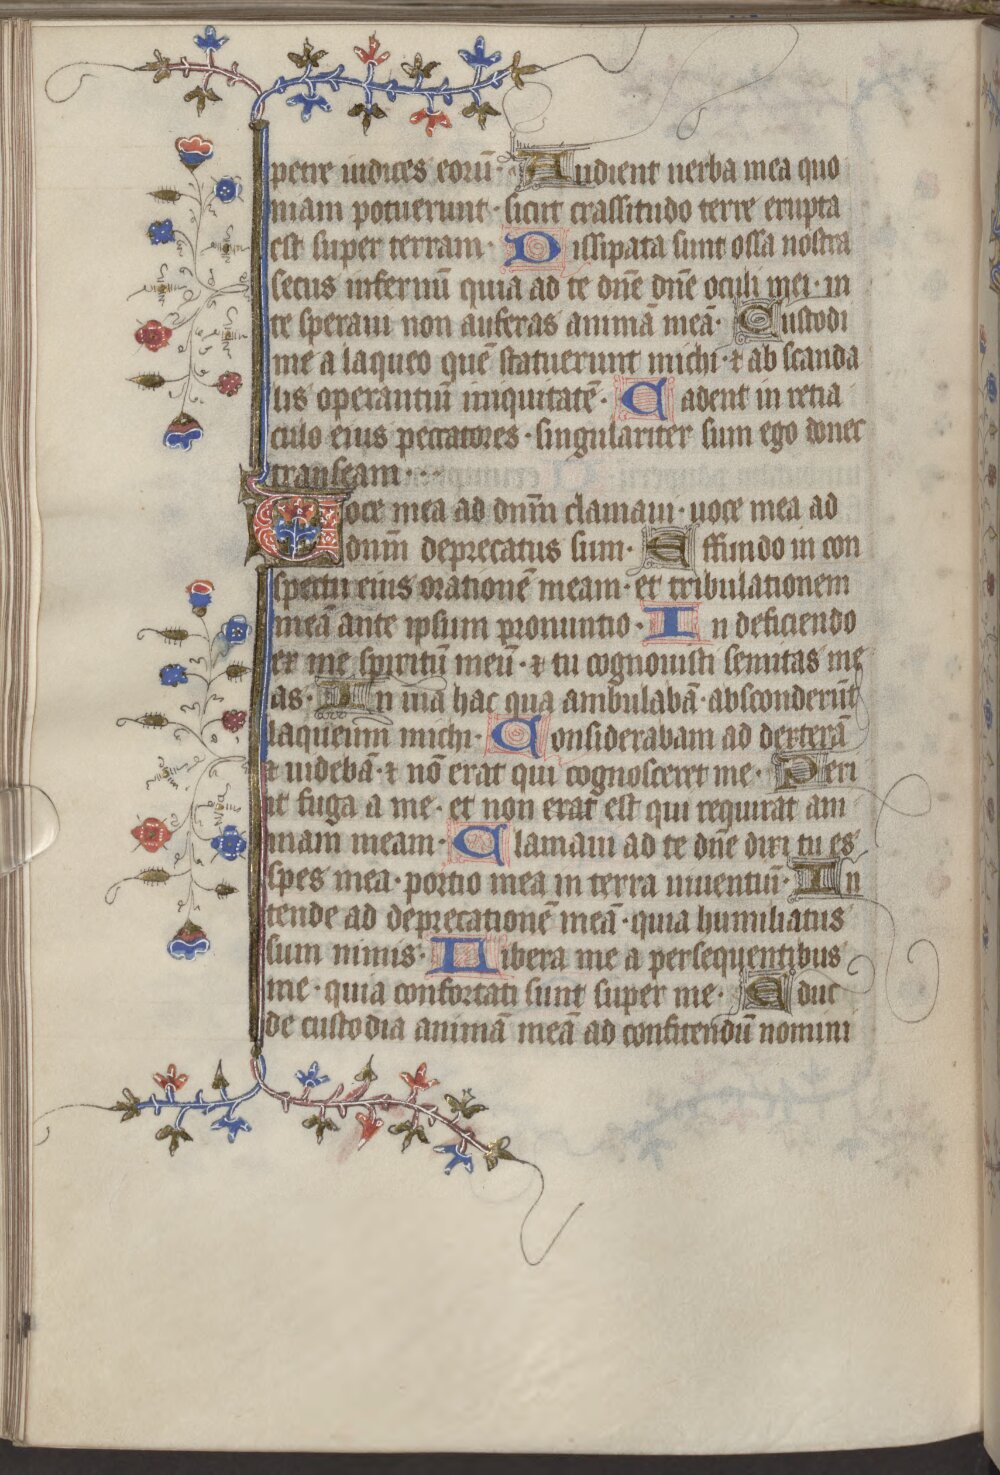 petre iudices eorū· Audient uerba mea quo
niam potuerunt· sicut crassitudo terre erupta
est super terram· Dissipata sunt ossa nostra
secus infernū quia ad te dn̄e dn̄e oculi mei· in
te speraui non auferas animā meā· Custodi
me a laqueo quē statuerunt michi· ⁊ ab scanda
lis operantiū iniquitatē· Cadent in retia
culo eius peccatores· singulariter sum ego donec
transeam·
Uoce mea ad dnm̄ clamaui· uoce mea ad
dnm̄ deprecatus sum· Effundo in con
spectu eius orationē meam· et tribulationem
meā ante ipsum pronuntio· In deficiendo
ex me spiritū meū· ⁊ tu cognouisti semitas me
as· In uia hac qua ambulabā· absconderūt
laqueum michi· Considerabam ad dexterā
⁊ uidebā· ⁊ nō erat qui cognosceret me· Peri
it fuga a me· et non erat est qui requirat ani
mam meam· Clamaui ad te dn̄e dixi tu es
spes mea· portio mea in terra uiuentiū· In
tende ad deprecationē meā· quia humiliatus
sum nimis· Libera me a persequentibus
me· quia confortati sunt super me· Educ
de custodia animā meā ad confitendū nomini